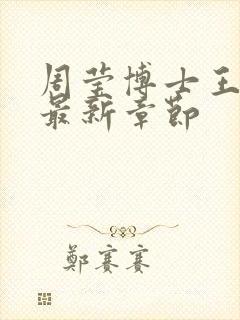 周莹博士王
最新章节
鄭賽賽